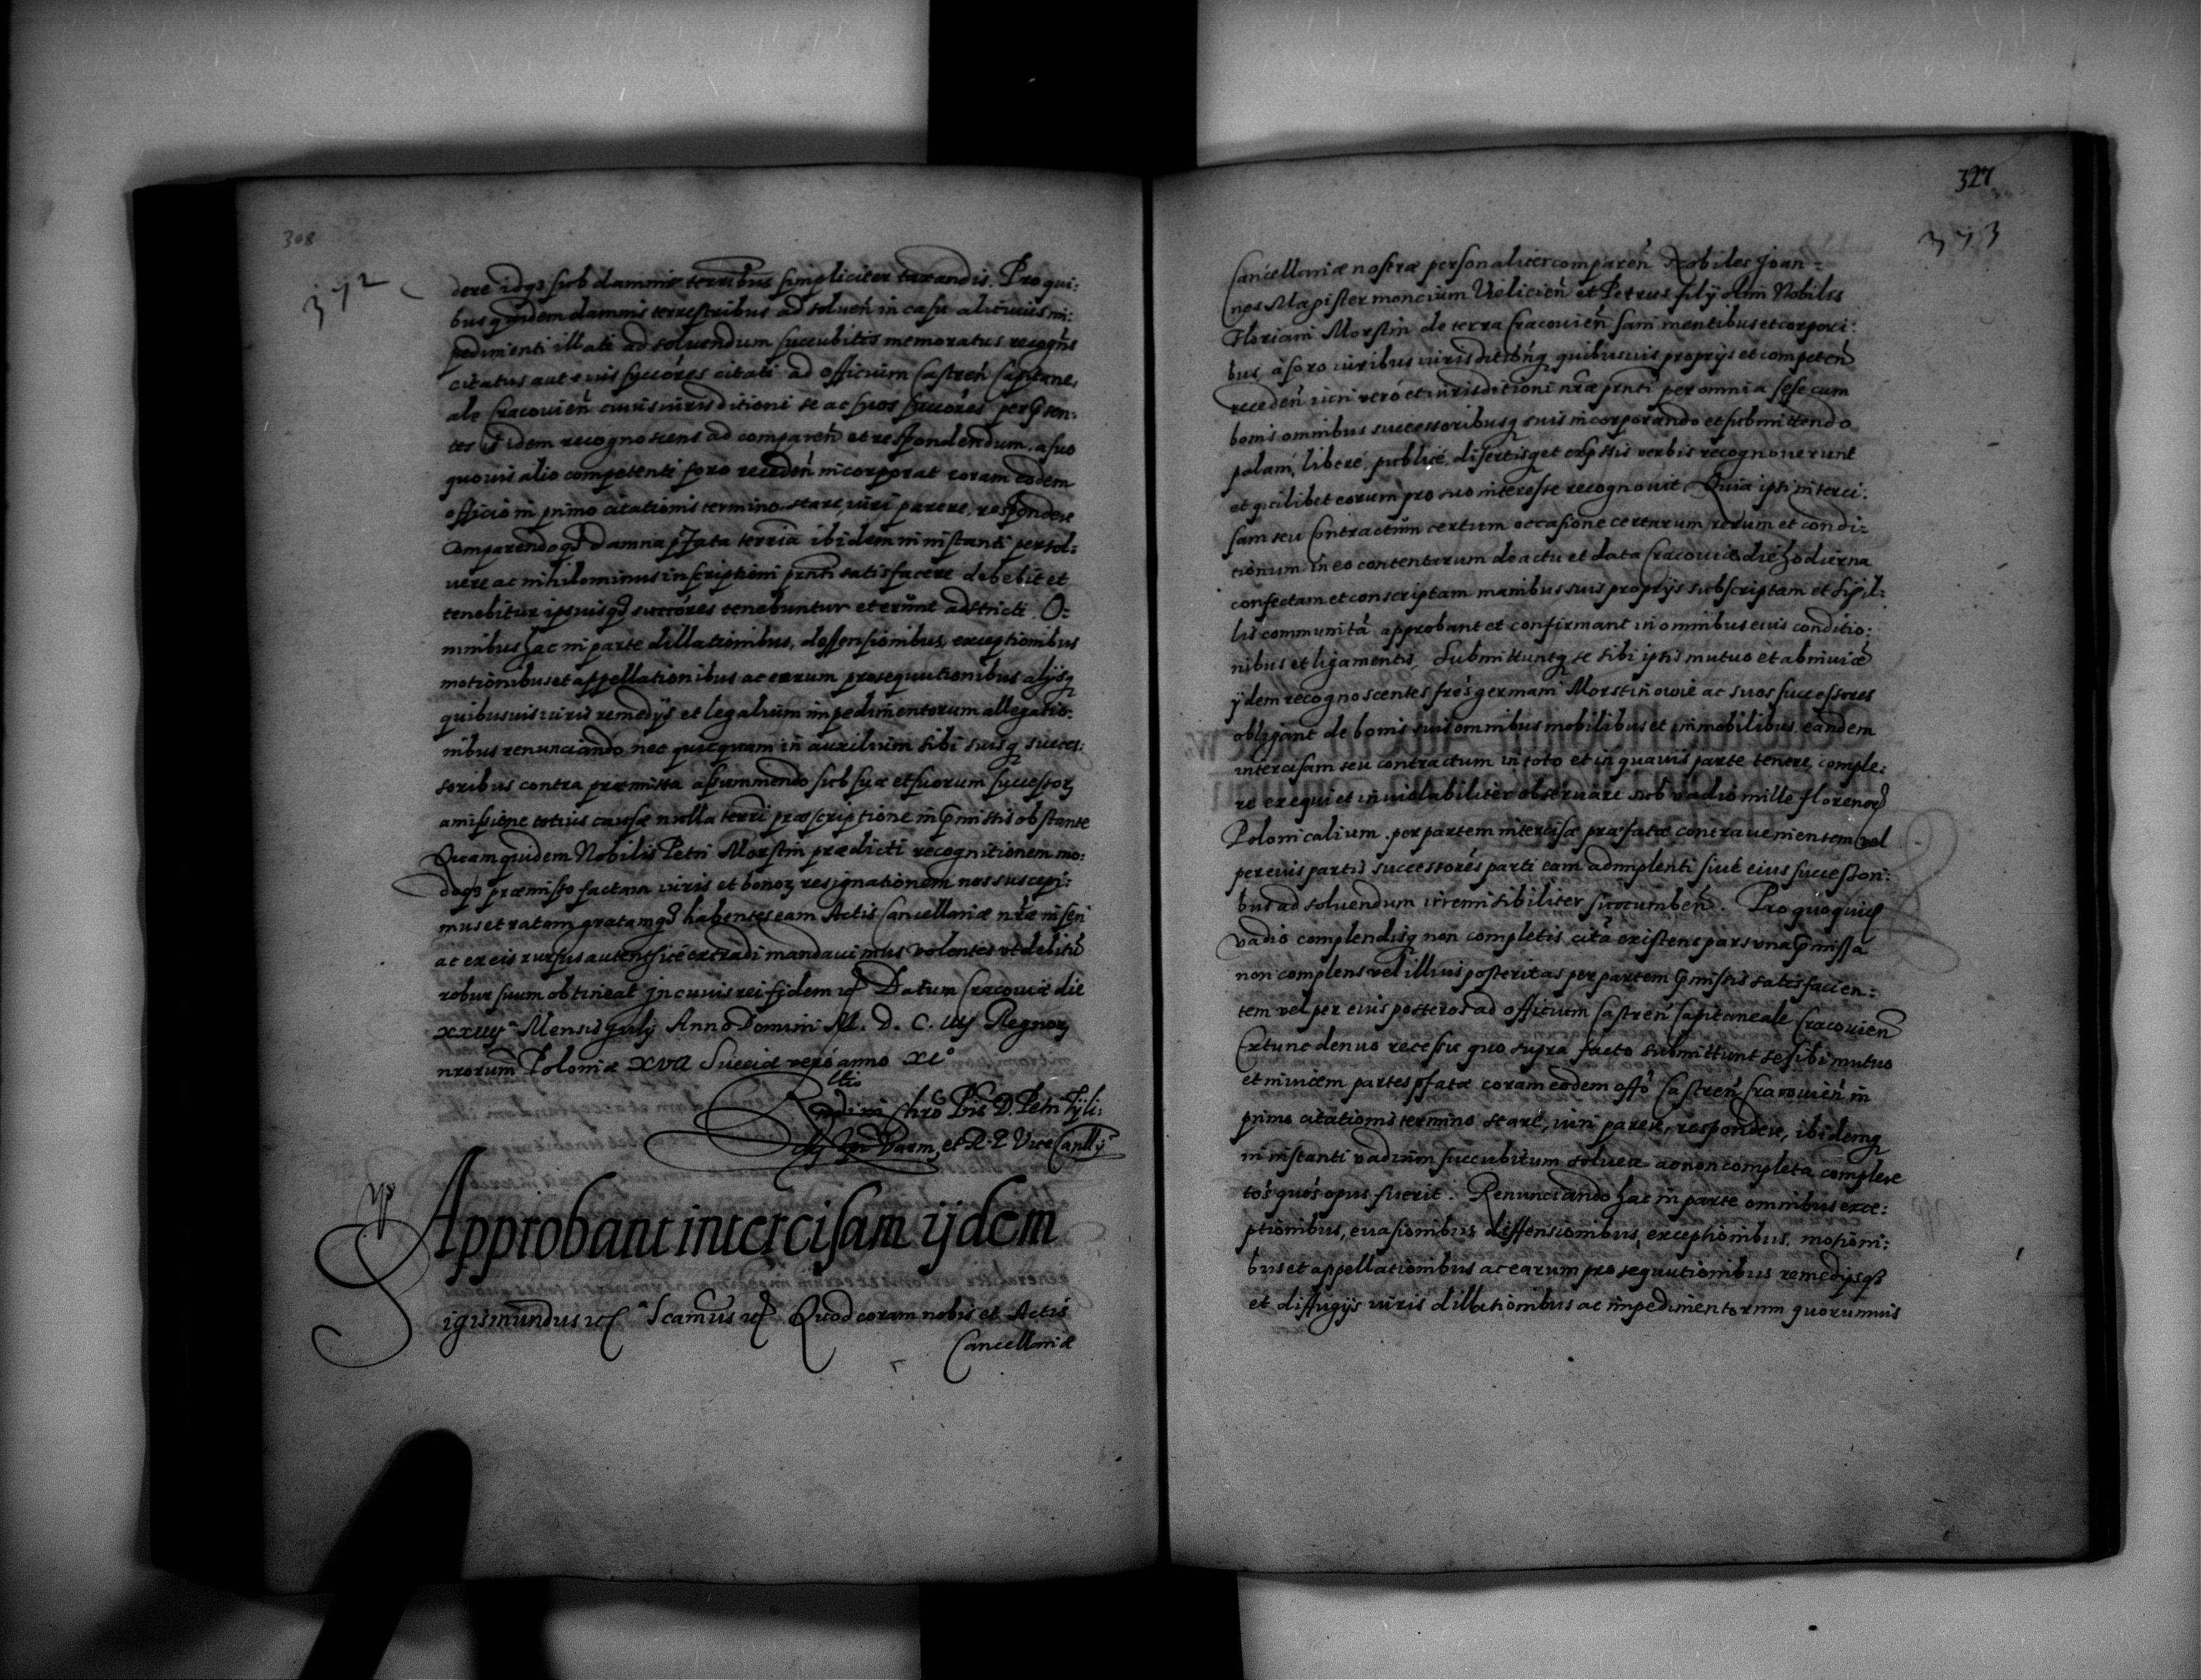 308
372
dere idqȝ sub damnis terribus simpliciter taxandis. Pro qui:
bus quidem damnis terrestribus ad soluen̄ in casu alicuius im:
pedimenti illati ad soluendum succubitis memoratus recogn̄s
citatus aut eius succōres citati ad officium Castren̄ Capitane,
ale Cracouien̄ cuius iurisditioni se ac suos succōres per p̄sen:
tes idem recognoscens ad comparen̄ et respondendum, a suo
quouis alio competenti foro receden̄ incorporat coram eodem
officio in primo citationis termino stare, iuri parere, respondere
Comparendoqȝ damna p̄fata terria ibidem in instanti persol:
uere ac nihilominus inscriptioni prn̄ti satisfacere debebit et
tenebitur ipsiusqȝ succōres tenebuntur et erunt adstricti. O:
mnibus hac in parte dillationibus, deffensionibus, exceptionibus
motionibus et appellationibus ac earum prosequutionibus alijsqȝ
quibusuis iuris remedijs et legalium impedimentorum allegatio:
nibus renunciando nec quicquam in auxilium sibi suisqȝ succes:
soribus contra præmissa assummendo sub sua et suorum successorȝ
amissione totius causæ nulla terri præscriptione in p̄missis obstante
Quam quidem Nobilis Petri Morstin prædicti recognitionem mo:
doqȝ præmisso factam iuris et bonorȝ resignationem nos suscepi:
mus et ratam gratamqȝ habentes eam Actis Cancellariæ nr̄æ inseri
ac ex eis rursus autentice extradi mandauimus volentes vt debitū
robur suum obtineat In cuius rei fidem etc̄ Datum Cracouiæ die
xxiiij a Mensis Julij Anno Domini M. D. C. iij Regnorȝ
nrorum Poloniæ XVI Sueciæ vero anno XI°
llio
Rndi in Chrō Pris D. Petri Tyli:
cki Epi Varm, et R. P. Vice Canllj
Approbant intercisam ijdem
Sigismundus etc̄ Scamus etc̄ Quod coram nobis et Actis
Cancellariæ
327
373
Cancellariæ nostræ personaliter comparen̄ Nobiles Joan=
nes Magister moncium Velicien̄ et Petrus filij olim Nobilis
Floriani Morstin de terra Cracouien̄ sani mentibus et corpori:
bus, a foro iuribus iurisditionqȝ quibusuis proprijs et competen̄
receden̄ iuri vero et iurisditioni nr̄æ prn̄ti per omnia sese cum
bonis omnibus successoribusqȝ suis incorporando et submittendo
palam, libere, publice, disertisqȝ et exp̄ssis verbis recognouerunt
et quilibet eorum pro suo interesse recognouit. Quia ipsi interci:
sam seu Contractum certum occasione certarum rerum et condi=
tionum in eo contentarum de actu et data Cracouiæ die hodierna
confectam et conscriptam manibus suis proprijs subscriptam et sigil=
lis communitā approbant et confirmant in omnibus eius conditio:
nibus et ligamentis, Submittuntqȝ se sibi ipsis mutuo et abinuicē
ijdem recognoscentes frēs germani Morstinowie ac suos successores
obligant de bonis suis omnibus mobilibus et immobilibus, eandem
intercisam seu contractum in toto et in quauis parte tenere, comple:
re exequi et inuiolabiliter obseruare sub vadio mille florenorȝ
Polonicalium. per partem intercisæ præfatæ contrauenientem vel
per eius partis successores parti eam adimplenti siue eius successori:
bus ad soluendum irremissibiliter succumben̄. Pro quoquidē
vadio complendisqȝ non completis citā existens pars vna p̄missa
non complens vel illius posteritas per partem p̄missis satisfacien=
tem vel per eius posteros ad officium Castren̄ Capitaneale Cracouien̄
Extunc denuo recessu quo supra facto submittunt se sibi mutuo
et inuicem partes p̄fatæ coram eodem offō Castren̄ Cracouien̄ in
primo citationis termino stare, iuri parere, respondere, ibidemqȝ
in instanti vadium succubitum soluere ac non completa complere
tōs quōs opus fuerit. Renunciando hac in parte omnibus exce:
ptionibus, euasionibus, deffensionibus, exceptionibus, motioni:
bus et appellationibus ac earum prosequutionibus remedijsqȝ
et diffugijs iuris dillationibus ac impedimentorum quorumuis